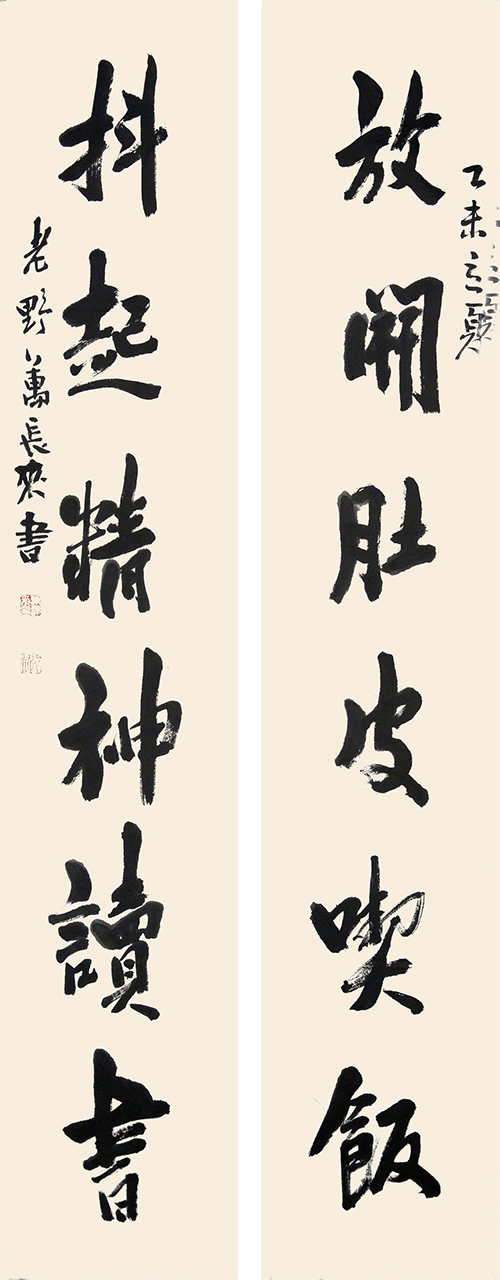 乙未之夏
放開肚皮喫飯
抖起精神讀書
老野萬長書